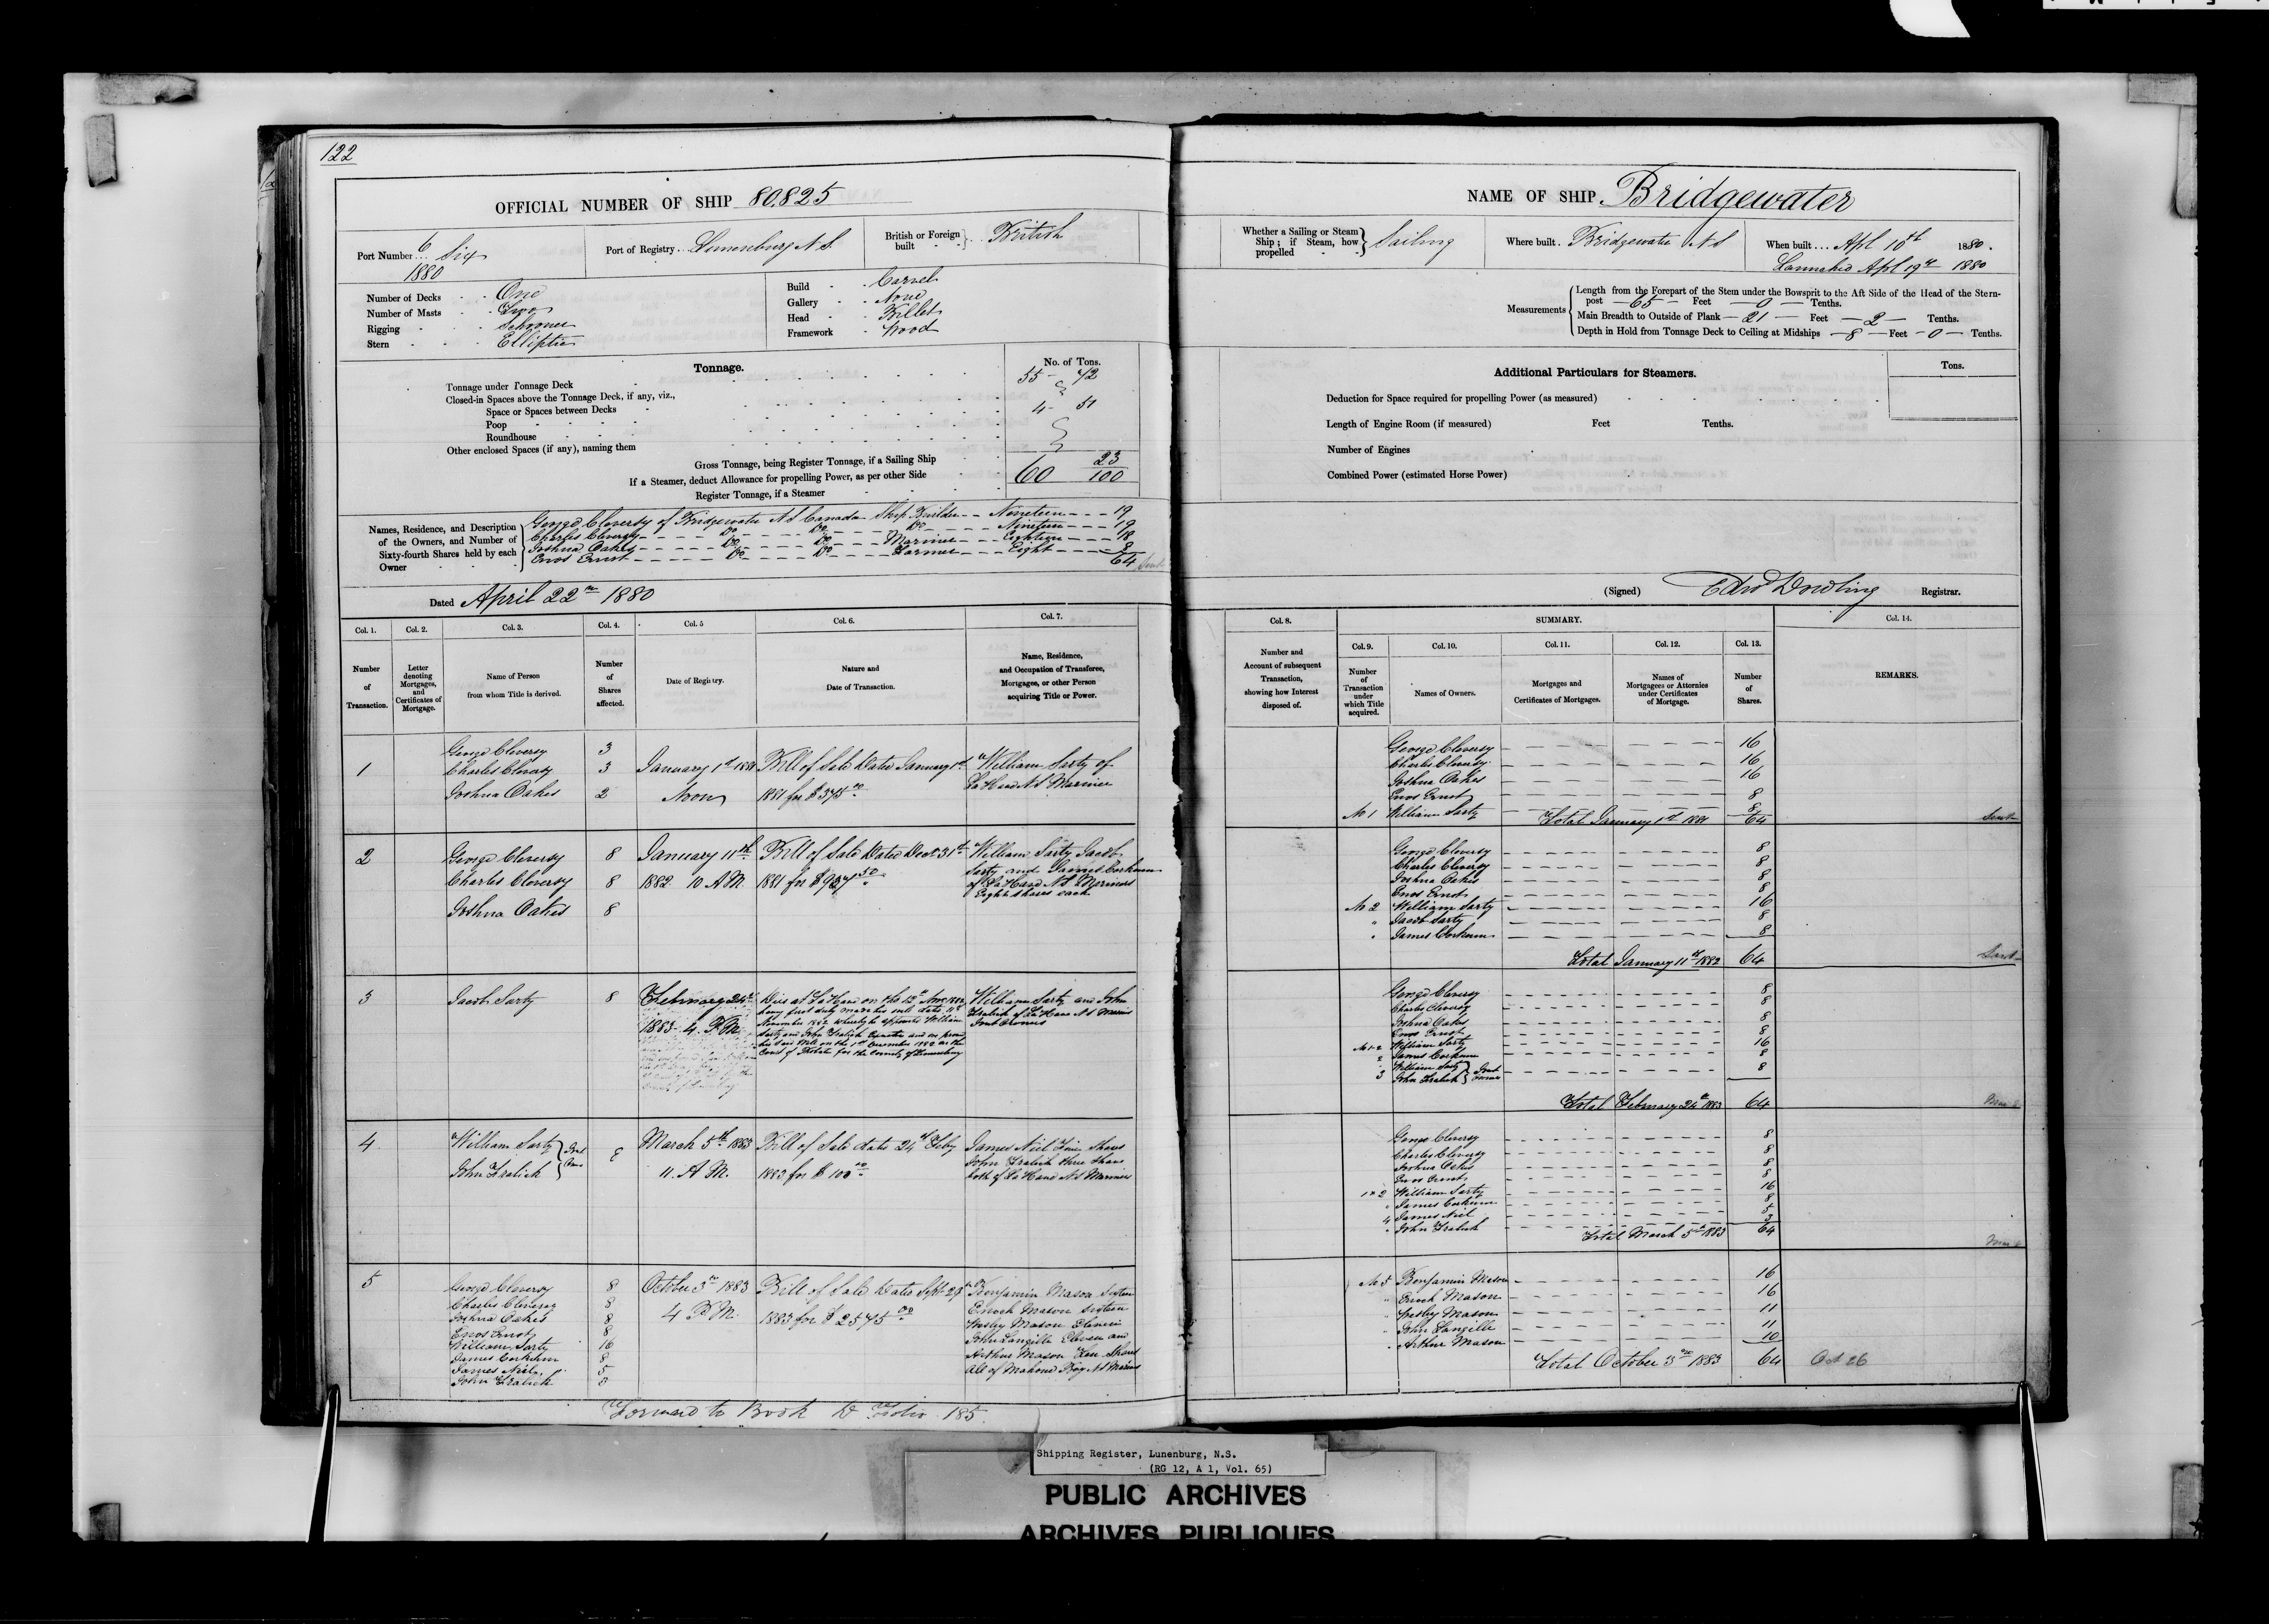 122
OFFICIAL NUMBER OF SHIP 80.825
Port Number... 6 Six 1880
Port of Registry.. Lunenburg N.S.
British or Foreign built } British
Number of Decks One
Number of Masts Two
Rigging Schooner
Stern Elliptic
Build Carvel
Gallery None
Head Billet
Framework Wood
Tonnage.
No. of Tons.
Tonnage under Tonnage Deck 55 - 72
Closed-in Spaces above the Tonnage Deck, if any, viz.,
Space or Spaces between Decks 4- 51
Poop
Roundhouse
Other enclosed Spaces (if any), naming them
Gross Tonnage, being Register Tonnage, if a Sailing Ship 60 23/100
If a Steamer, deduct Allowance for propelling Power, as per other Side
Register Tonnage, if a Steamer
Names, Residence, and Description of the Owners, and Number of Sixty-fourth Shares held by each Owner
George Cleversy of Bridgewater N.S. Canada Ship Builder -- Nineteen --- 19
Charles Cleversy Do Do Do Nineteen 19
Joshua Oakes Do Do Mariner Eighteen 18
Enos Ernst Do Do Farmer Eight 8
64
Dated April 22nd 1880
Col. 1. Col. 2. Col. 3. Col. 4. Col. 5 Col. 6. Col. 7.
Number of Transaction.
Letter denoting Mortgages, and Certificates of Mortgage.
Name of Person from whom Title is derived.
Number of Shares affected.
Date of Registry.
Nature and Date of Transaction.
Name, Residence, and Occupation of Transferee, Mortgagee, or other Person acquiring Title or Power.
1 George Cleversy 3
Charles Cleversy 3
Joshua Oakes 2
January 1st 1881 Noon
Bill of Sale Dated January 1st 1881 for $375.00
William Sarty of La Have N.S. Mariner
2 George Cleversy 8
Charles Cleversy 8
Joshua Oakes 8
January 11th 1882 10 A.M.
Bill of Sale Dated Decr 31st 1881 for $937.50
William Sarty Jacob
Sarty and James Corkum
of La Have N.S. Mariners
Eight shares each
3 Jacob Sarty 8
February 24th 1883 4. P.M.
Died at La Have on the 12th Novr 1882
having first duly made his will dated
November 1882 whereby he appointed William
Sarty and John Fralick Executors and on
his said Will on the 1st December 1882 in the
Court of Probate for the County of Lunenburg
William Sarty and John
Fralick of La Have N.S. Mariners
Joint Owners
4 William Sarty
John Fralick } Joint Owners 8
March 5th 1883 11. A.M.
Bill of Sale dated 24th Feby 1883 for $100.00
James Niel Five Shares
John Fralick three Shares
both of La Have N.S. Mariners
5 George Cleversy 8
Charles Cleversy 8
Joshua Oakes 8
Enos Ernst 8
William Sarty 16
James Corkum 8
James Niel 5
John Fralick 3
October 3rd 1883 4 P.M.
Bill of Sale Dated Sept 28 1883 for $2575.00
Benjamin Mason Sixteen
Enoch Mason Sixteen
Wesley Mason Eleven
John Langille Eleven and
Arthur Mason Ten Shares
All of Mahone Bay N.S. Mariners
Forward to Book D Folio 185.
NAME OF SHIP Bridgewater
Whether a Sailing or Steam Ship; if Steam, how propelled } Sailing
Where built. Bridgewater N.S.
When built... Apl 10th 1880.
Launched Apl 19th 1880
Measurements
Length from the Forepart of the Stem under the Bowsprit to the Aft Side of the Head of the Stern-
post — 65 — Feet — 0 — Tenths.
Main Breadth to Outside of Plank — 21 — Feet — 2 — Tenths.
Depth in Hold from Tonnage Deck to Ceiling at Midships — 8 — Feet — 0 — Tenths.
Additional Particulars for Steamers.
Tons.
Deduction for Space required for propelling Power (as measured)
Length of Engine Room (if measured) Feet Tenths.
Number of Engines
Combined Power (estimated Horse Power)
(Signed) Edwd Dowling Registrar.
Col. 8. SUMMARY. Col. 14.
Col. 9. Col. 10. Col. 11. Col. 12. Col. 13.
Number and Account of subsequent Transaction, showing how Interest disposed of.
Number of Transaction under which Title acquired.
Names of Owners.
Mortgages and Certificates of Mortgages.
Names of Mortgagees or Attornies under Certificates of Mortgage.
Number of Shares.
REMARKS.
George Cleversy 16
Charles Cleversy 16
Joshua Oakes 16
Enos Ernst 8
No 1 William Sarty 8
Total January 1st 1881 64
George Cleversy 8
Charles Cleversy 8
Joshua Oakes 8
Enos Ernst 8
No 2 William Sarty 16
" Jacob Sarty 8
" James Corkum 8
Total January 11th 1882 64
George Cleversy 8
Charles Cleversy 8
Joshua Oakes 8
Enos Ernst 8
No 1-2 William Sarty 16
2 James Corkum 8
3 William Sarty
John Fralick } Joint Owners 8
Total February 24th 1883 64
George Cleversy 8
Charles Cleversy 8
Joshua Oakes 8
Enos Ernst 8
1 & 2 William Sarty 16
" James Corkum 8
4 James Niel 5
" John Fralick 3
Total March 5th 1883 64
No 5 Benjamin Mason 16
" Enoch Mason 16
" Wesley Mason 11
" John Langille 11
" Arthur Mason 10
Total October 3rd 1883 64
Oct 26
Shipping Register, Lunenburg, N.S.
(RG 12, A 1, Vol. 65)
PUBLIC ARCHIVES
ARCHIVES PUBLIQUES